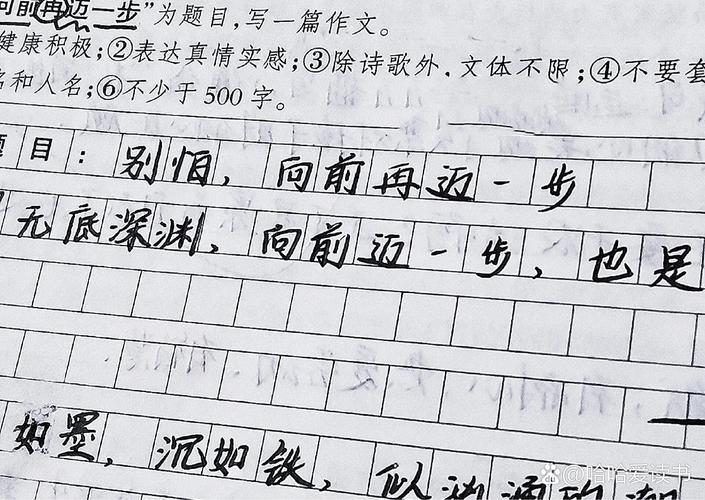 向前再迈一步”为题目，写一篇作文。
健康积极；②表达真情实感；③除诗歌外，文体不限；④不要套
名和人名；⑥不少于 500 字。
题目：别怕，向前再迈一步
无底深渊，向前迈一步，也是
如墨，沉如铁，似汹涌的
哈哈爱读书